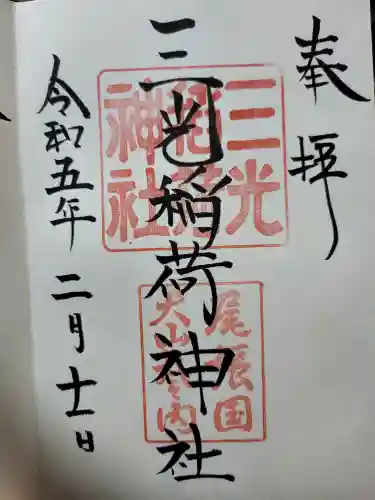 奉拝
三光稲荷神社
三光稲荷神社
尾張国
犬山城内
令和五年 二月十一日